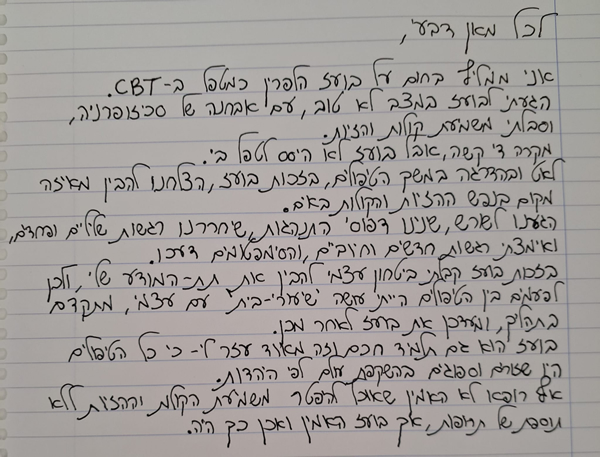 לכל מאן דבעי,
אני ממליץ בחום על בועז הלפרין כמטפל ב-CBT.
הגעתי לבועז במצב לא טוב, עם אבחנה של סכיזופרניה,
וסבלתי משמיעת קולות והזיות.
מקרה די קשה, אבל בועז לא היסס לטפל בי.
לאט ובהדרגה במשך הטיפולים, בזכות בועז, הצלחנו להבין מאיזה
מקום בנפש ההזיות והקולות באים.
הגענו לשורש, שנינו דפוסי התנהגות, שיחררנו רגשות שליליים ופחדים,
ואימצתי רגשות חדשים וחיוביים, והסימפטומים דעכו.
בזכות בועז קבלתי ביטחון עצמי להבין את תת-המודע שלי, ולכן
לפעמים בין הטיפולים הייתי עושה "שיעורי-בית" עם עצמי, מתקדם
בתהליך, ומעדכן את בועז לאחר מכן.
בועז הוא גם תלמיד חכם וזה מאוד עזר לי - כי כל הטיפולים
היו שזורים וספוגים בהשקפת עולם לפי היהדות.
אף רופא לא האמין שאוכל להפטר משמיעת הקולות וההזיות ללא
תוספת של תרופות, אך בועז האמין ואכן כך היה.